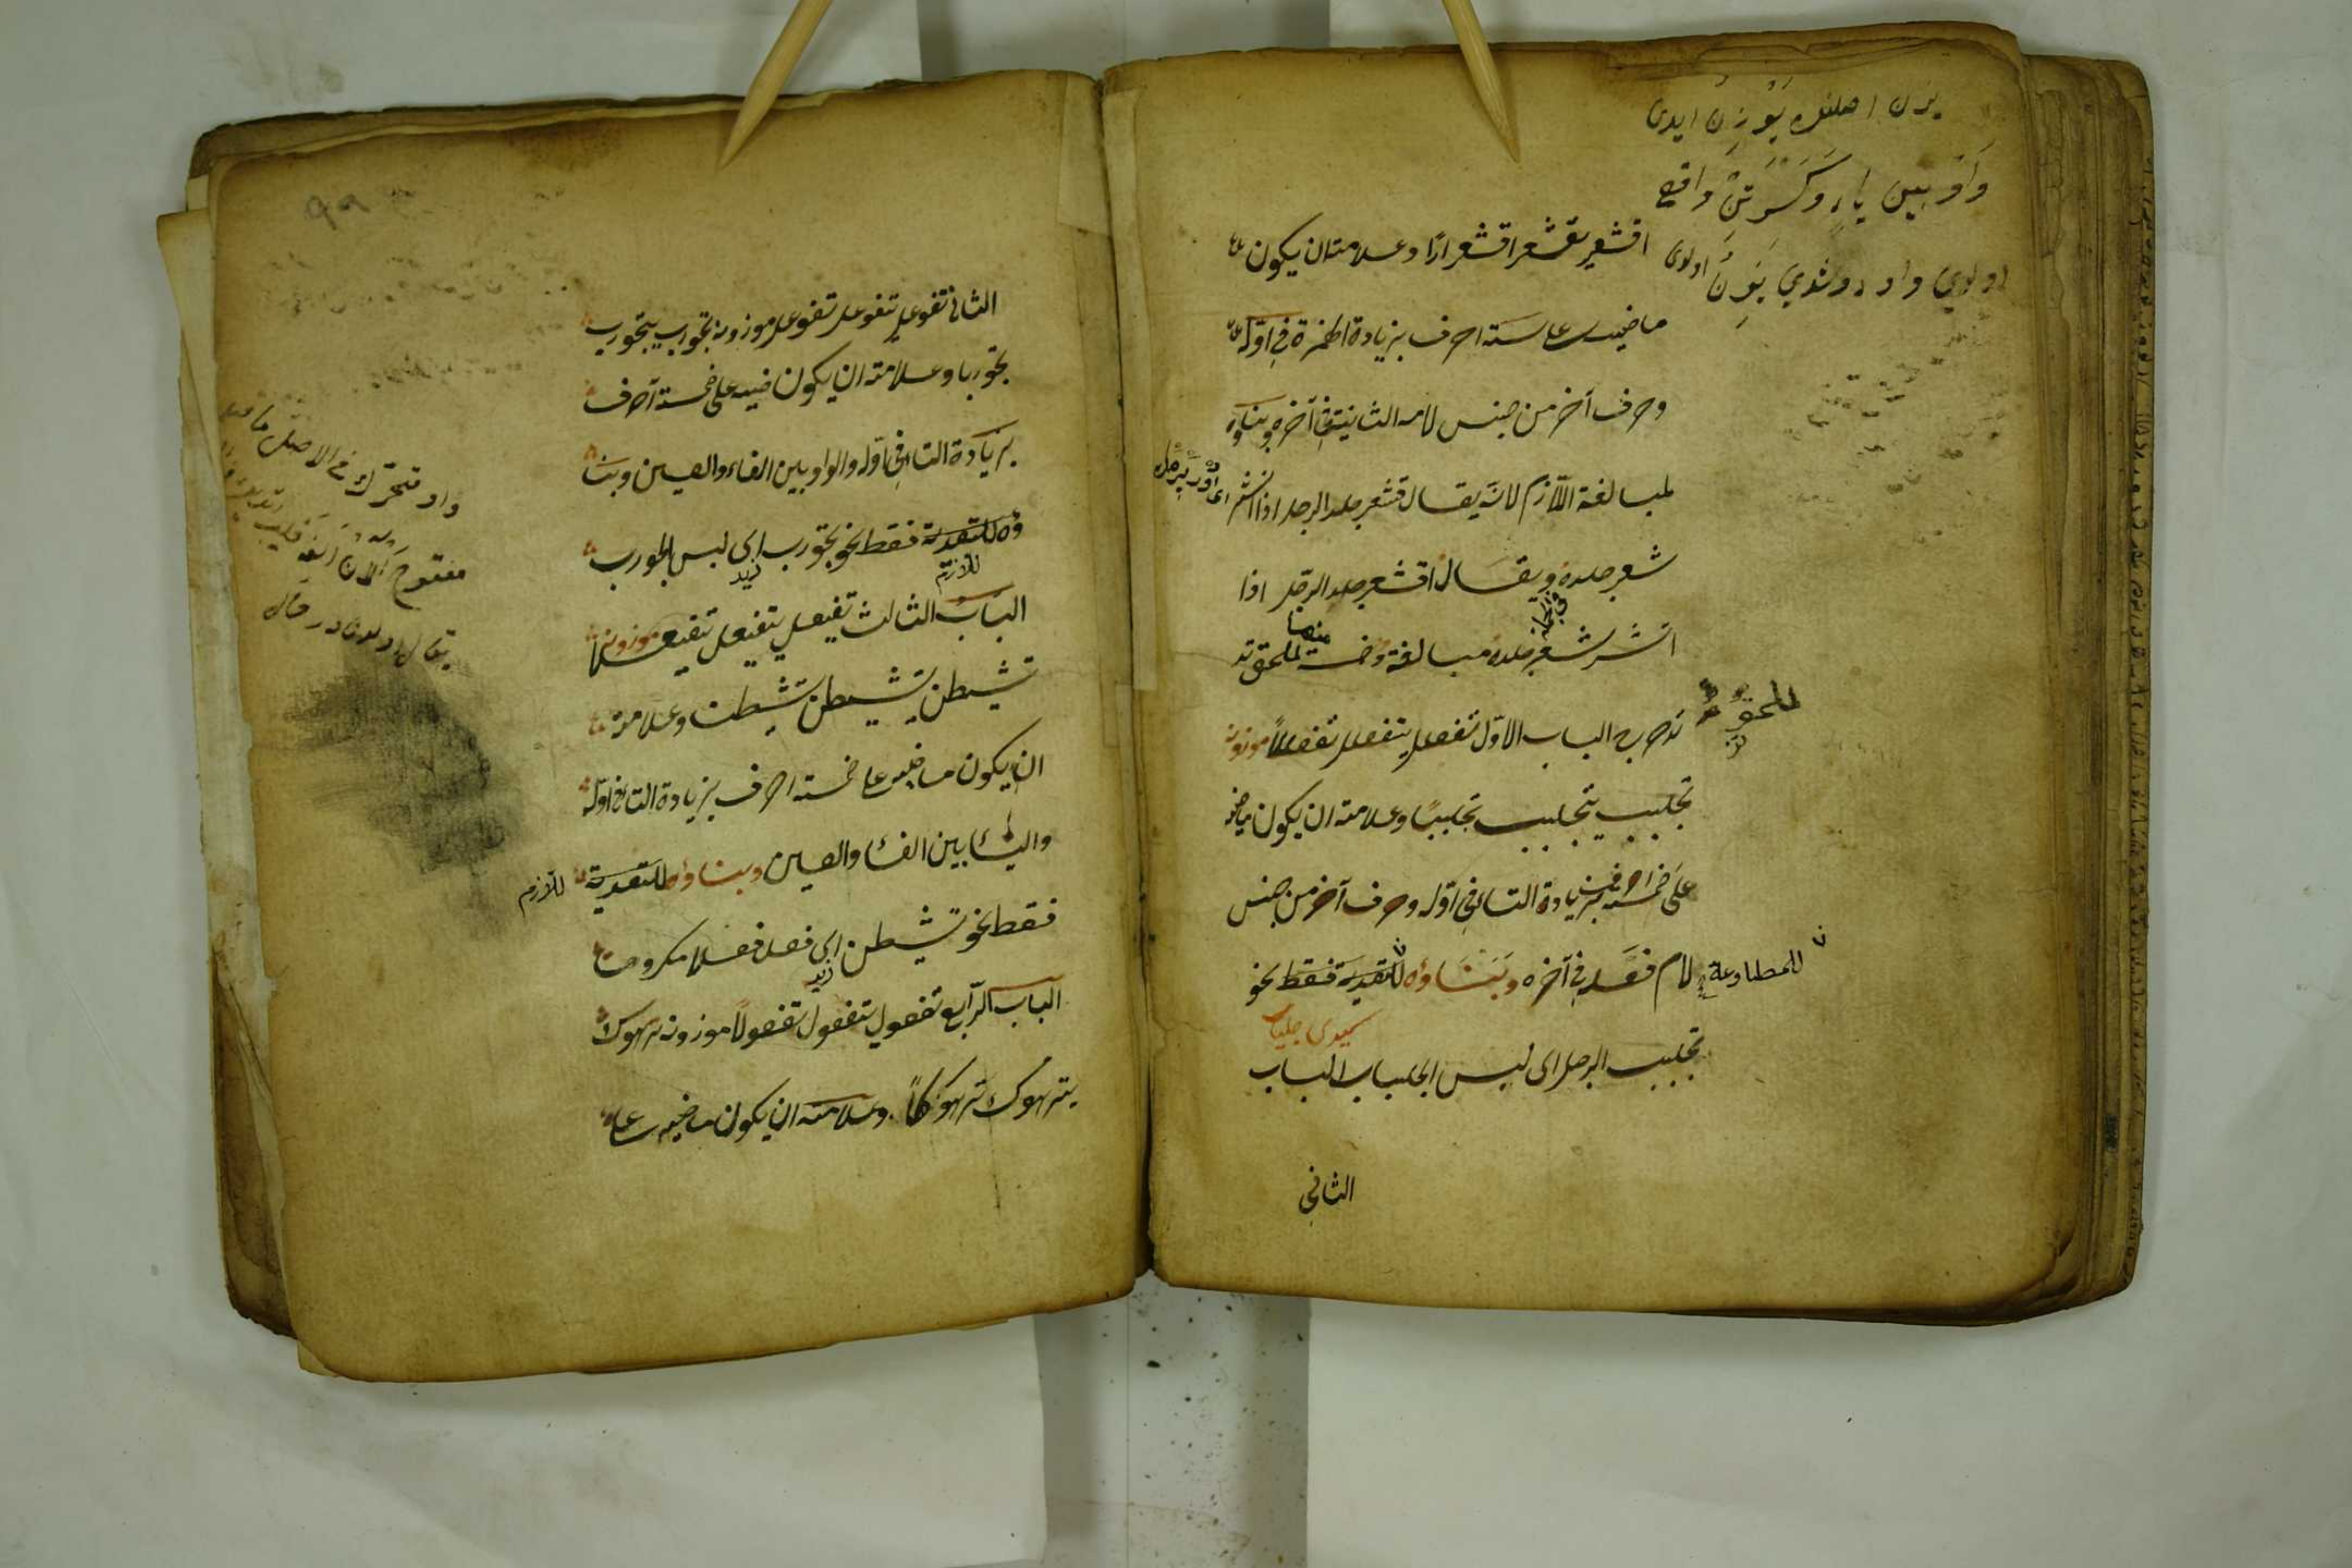 يزن اصلنده يَوْزِنُ ايدى
وَاوْ بين ياءٍ وَكَسْرَتَيْن واقع
اولدي واو دوشدي يَزِنُ اولدى
اقشعر يقشعر اقشعرارًا وعلامته ان يكون
ماضيه على ستة احرف بزيادة الهمزة فى اوّله
وحرف آخر من جنس لامه الثانية فى آخره وبناؤه
لمبالغة اللّازم لانّه يقال قشعر جلد الرجل اذا انتشر
شعر جلده ويقال اقشعر جلد الرجل اذا
انتشر شعر جلده مبالغة وخمسة منها لملحق تد
للملحق
تدحرج الباب الاوّل تفعلل يتفعلل تفعللًا موزونه
تجلبب يتجلبب تجلببًا وعلامته ان يكون ماضيه
على خمسة احرف بزيادة التاء فى اوّله وحرف آخر من جنس
للمطاوعة
لام فعله فى آخره وبناؤه للتعدية فقط نحو
تجلبب الرجل اى لبس الجلباب الباب
الثانى
الثانى تفوعل يتفوعل تفوعلا موزونه تجورب يتجورب
تجوربا وعلامته ان يكون ضيه على خمسة آحرف
بزيادة التاء فى اوّله والواو بين الفاء والعين وبنا
ؤه للتعدية فقط نحو تجورب اى لبس الجورب
للازم
زيد
الباب الثالث تفيعل يتفيعل تفيعلًا موزونه
تشيطن يتشيطن تشيطنا وعلامته
ان يكون ماضيه على خمسة احرف بزيادة التاء فى اوّله
والياء بين الفاء والعين وبناؤه للتعدية
للازم
فقط نحو تشيطن اى فعل فعلا مكروها
زيد
الباب الرّابع تفعول يتفعول تفعولًا موزونه ترهوك
يترهوك ترهوكًا وعلامته ان يكون ماضيه على
واو متحرّك فى الاصل ما قبل
مفتوح